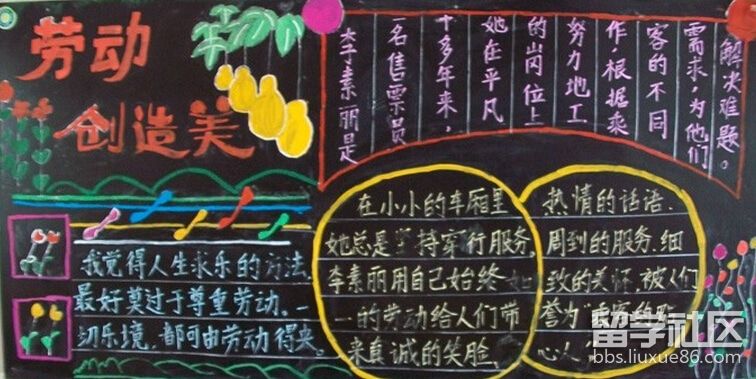 劳动
创造美
李素丽是
一名售票员
十多年来,
她在平凡
的岗位上
努力地工
作,根据乘
客的不同
需求,为他们
解决难题。
我觉得人生求乐的方法,
最好莫过于尊重劳动.一
切乐境,都可由劳动得来。
在小小的车厢里
她总是坚持穿行服务.
李素丽用自己始终如
一的劳动给人们带
来真诚的笑脸.
热情的话语.
周到的服务.细
致的关怀.被人们
誉为
心人
留学社区
bbs.liuxue86.com